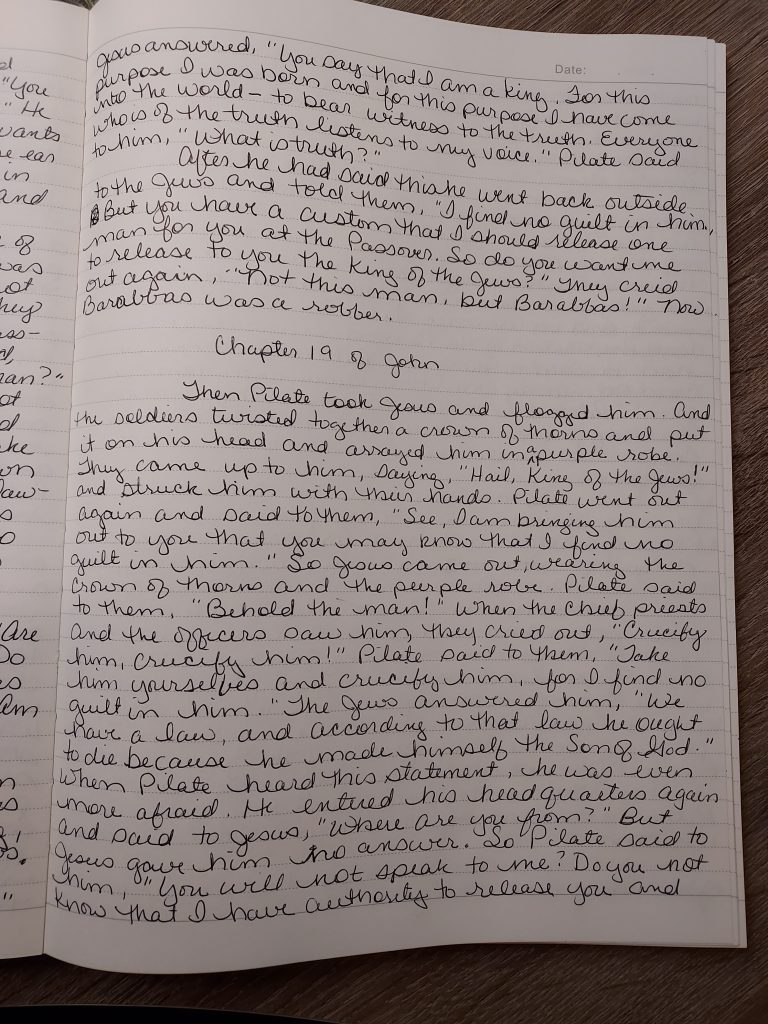 d
"You
" He
wants
e ear
in
and
of
was
ot
hey
ss-
d,
man?"
ot
d
ke
wn
law-
s
o
"Are
Do
s
Am
n
s
s.
"
Date:
Jesus answered, "You say that I am a king. For this
purpose I was born and for this purpose I have come
into the world - to bear witness to the truth. Everyone
who is of the truth listens to my voice." Pilate said
to him, "What is truth?"
After he had said this he went back outside
to the Jews and told them, "I find no guilt in him,
But you have a custom that I should release one
man for you at the Passover. So do you want me
to release to you the King of the Jews?" They creid
out again, "Not this man, but Barabbas!" Now
Barabbas was a robber.
Chapter 19 of John
Then Pilate took Jesus and flogged him. And
the soldiers twisted together a crown of thorns and put
it on his head and arrayed him in a purple robe.
They came up to him, saying, "Hail, King of the Jews!"
and struck him with their hands. Pilate went out
again and said to them, "See, I am bringing him
out to you that you may know that I find no
guilt in him." So Jesus came out, wearing the
crown of thorns and the purple robe. Pilate said
to them, "Behold the man!" When the chief priests
and the officers saw him, they cried out, "Crucify
him, crucify him!" Pilate said to them, "Take
him yourselves and crucify him, for I find no
guilt in him." The Jews answered him, "We
have a law, and according to that law he ought
to die because he made himself the Son of God."
When Pilate heard this statement, he was even
more afraid. He entered his headquarters again
and said to Jesus, "Where are you from?" But
Jesus gave him no answer. So Pilate said to
him, "You will not speak to me? Do you not
know that I have authority to release you and